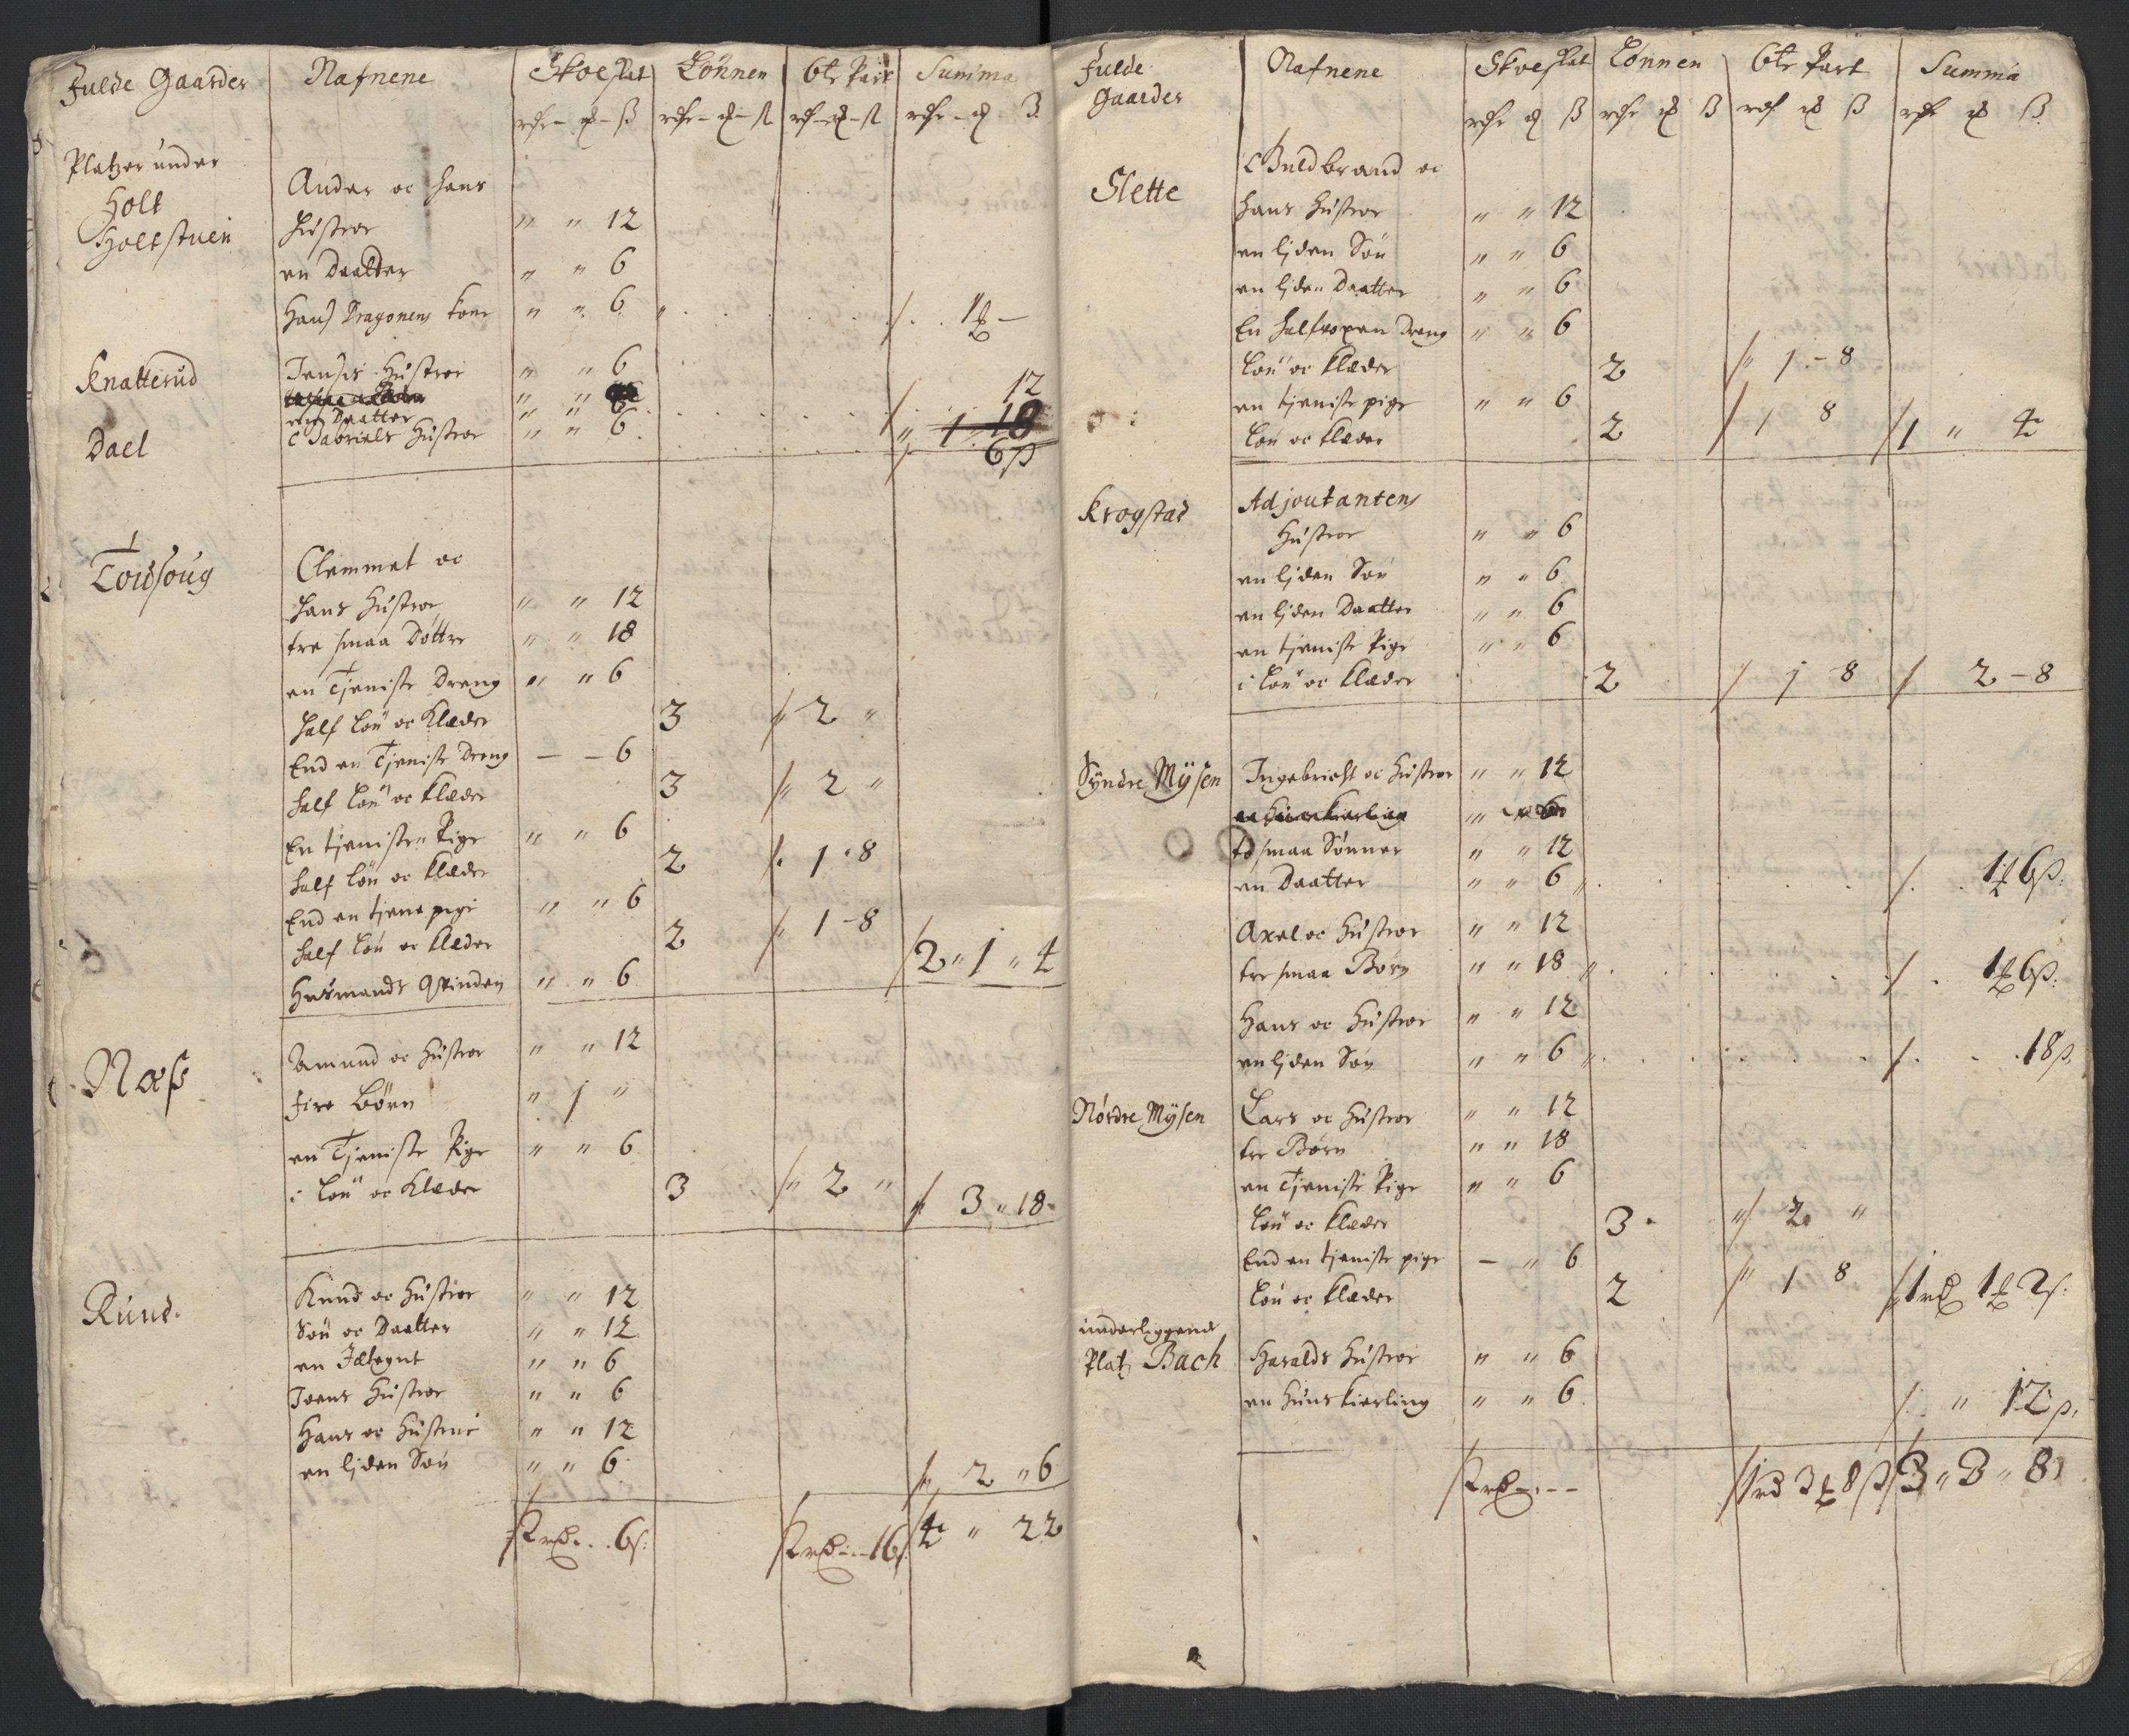 Fulde Gaarder Nafnene Skoeskat Lönnen 6te Part Summa
Platzer under
Holt Ander oc hans
Holtstuen Hustroe " " 12
en Daatter " " 6
Hans Dragonens kone " " 6 1 -
Knatterud Jensis Hustroe " " 6 12
Daatter " "
Dael Gabriels Hustroe " " 6 6 ß
Clemmet oc
hans Hustroe " " 12
tre smaa Döttre " " 18
en Tjeniste Dreng " " 6
half Lön oc Klæder 3 2 "
End en Tjeniste Dreng - - 6
half Lön oc klæder 3 2 "
En tjenisten Pige " " 6
half Lön oc klæder 2 1 " 8
End en tjene pige " " 6
half Lön oc klæder 2 1 - 8
Husmands Qvinden " " 6 2 " 1 " 4
Næs Amund oc Hustroe " " 12
fire Börn " 1 "
en Tjeniste Pige " " 6
i Lön oc Klæder 3 2 " 3 " 18
Rund Knud oc Hustroe " " 12
Sön oc Daatter " " 12
en " " 6
Joens Hustroe " " 6
Hans oc Hustrue " " 12
en liden Sön " " 6 2 " 6
2 rd . . 6 ß: 2 rd - - 16 ß: 4 " 22
Fulde Gaarder Nafnene Skoeskat Lönnen 6te Part Summa
Slette Guldbrand oc
hans Hustroe " " 12
en liden Sön " " 6
en liden Daatter " " 6
En halfvoxen Dreng " " 6
Lön oc klæder 2 1 - 8
en tjeniste pige " " 6
Lön oc klæder 2 1 8 1 " 4
Krogstad Adjoutantens
Hustroe " " 6
en liden Sön " " 6
en liden Daatter " " 6
en tjeniste Pige " " 6
i Lön oc klæder 2 1 8 2 - 8
Syndre Mÿsen Ingebricht oc Hustroe " " 12
to smaa Sönner " " 12
en Daatter " " 6 1 6 ß:
Axel oc Hustroe " " 12
tre smaa Börn " " 18 1 6 ß:
Hans oc Hustroe " " 12
en liden Sön " " 6 18 ß.
Nordre Mÿsen Lars oc Hustroe " " 12
tre Börn " " 18
en Tjeniste Pige " " 6
Lön oc klæder 3 2 "
End en tjeniste pige - " 6
Lön oc klæder 2 1 8 1 rd 1 2 ß:
underliggende
Platz Bach Haralds Hustroe " " 6
en Huuskierling " " 6 " 12 ß.
2 rd - - - 1 rd 3 8 ß 3 " 3 " 8